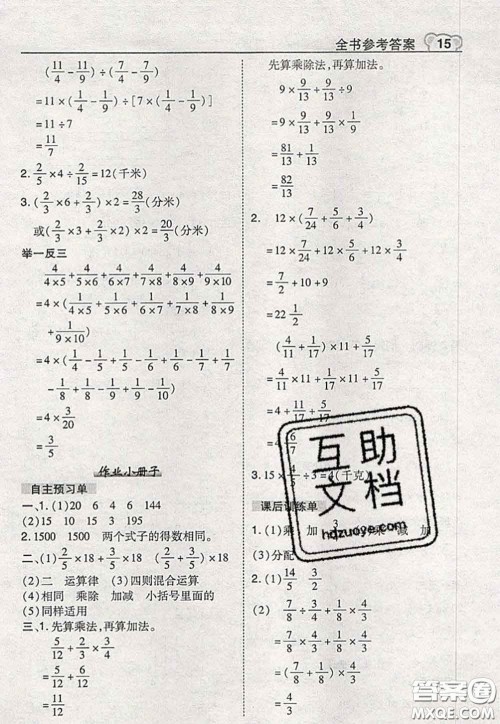 全书参考答案 15
(11/4 - 11/9) ÷ (7/4 - 7/9)
= [11 × (1/4 - 1/9)] ÷ [7 × (1/4 - 1/9)]
= 11 ÷ 7
= 11/7
2. 2/5 × 4 ÷ 2/15 = 12(千米)
3. (2/3 × 6 + 2/3) × 2 = 28/3(分米)
或(2/3 × 3 + 2/3 × 2) × 2 = 20/3(分米)
举一反三
4/(4×5) + 4/(5×6) + 4/(6×7) + 4/(7×8) + 4/(8×9)
+ 4/(9×10)
= 4 × (1/(4×5) + 1/(5×6) + 1/(6×7) + 1/(7×8) + 1/(8×9) +
1/(9×10))
= 4 × (1/4 - 1/5 + 1/5 - 1/6 + 1/6 - 1/7 + 1/7
- 1/8 + 1/8 - 1/9 + 1/9 - 1/10)
= 4 × 3/20
= 3/5
作业小册子
自主预习单
一、1. (1)20 6 4 6 144
(2)15 10 15 3 195
2. 1500 1500 两个式子的得数相同。
二、(1)2/5 × 18 + 3/5 × 18 (2/5 + 3/5) × 18
(2)二 运算律 (3)四则混合运算
(4)相同 乘除 加减 小括号里面的
(5)同样适用
三、1. 先算乘法,再算加法。
5/12 + 2/3 × 3/4
= 5/12 + 6/12
= 11/12
先算乘除法,再算加法。
9 × 9/13 + 1/13 ÷ 9
= 81/13 + 1/13
= 82/13
2. 12 × (7/24 + 5/6) + 12 × 3/4
= 12 × 7/24 + 12 × 5/6 + 12 × 3/4
= 7/2 + 10 + 9
= 22 1/2
(4/11 + 1/17) × 11 + 5/17
= 4/11 × 11 + 1/17 × 11 + 5/17
= 4 +
= 4
(千克)
课后训练单
1. (1)乘 加 减 加
(3)分配
2. (1)14/5 3/2
(2) 7/8 ÷ 4/3 + 1/8 × 3/4
= 7/8 × 3/4 + 1/8 × 3/4
= (7/8 + 1/8) × 3/4
= 3/4
互助
文档
hdzuoye.com
答案圈
MXQE.COM